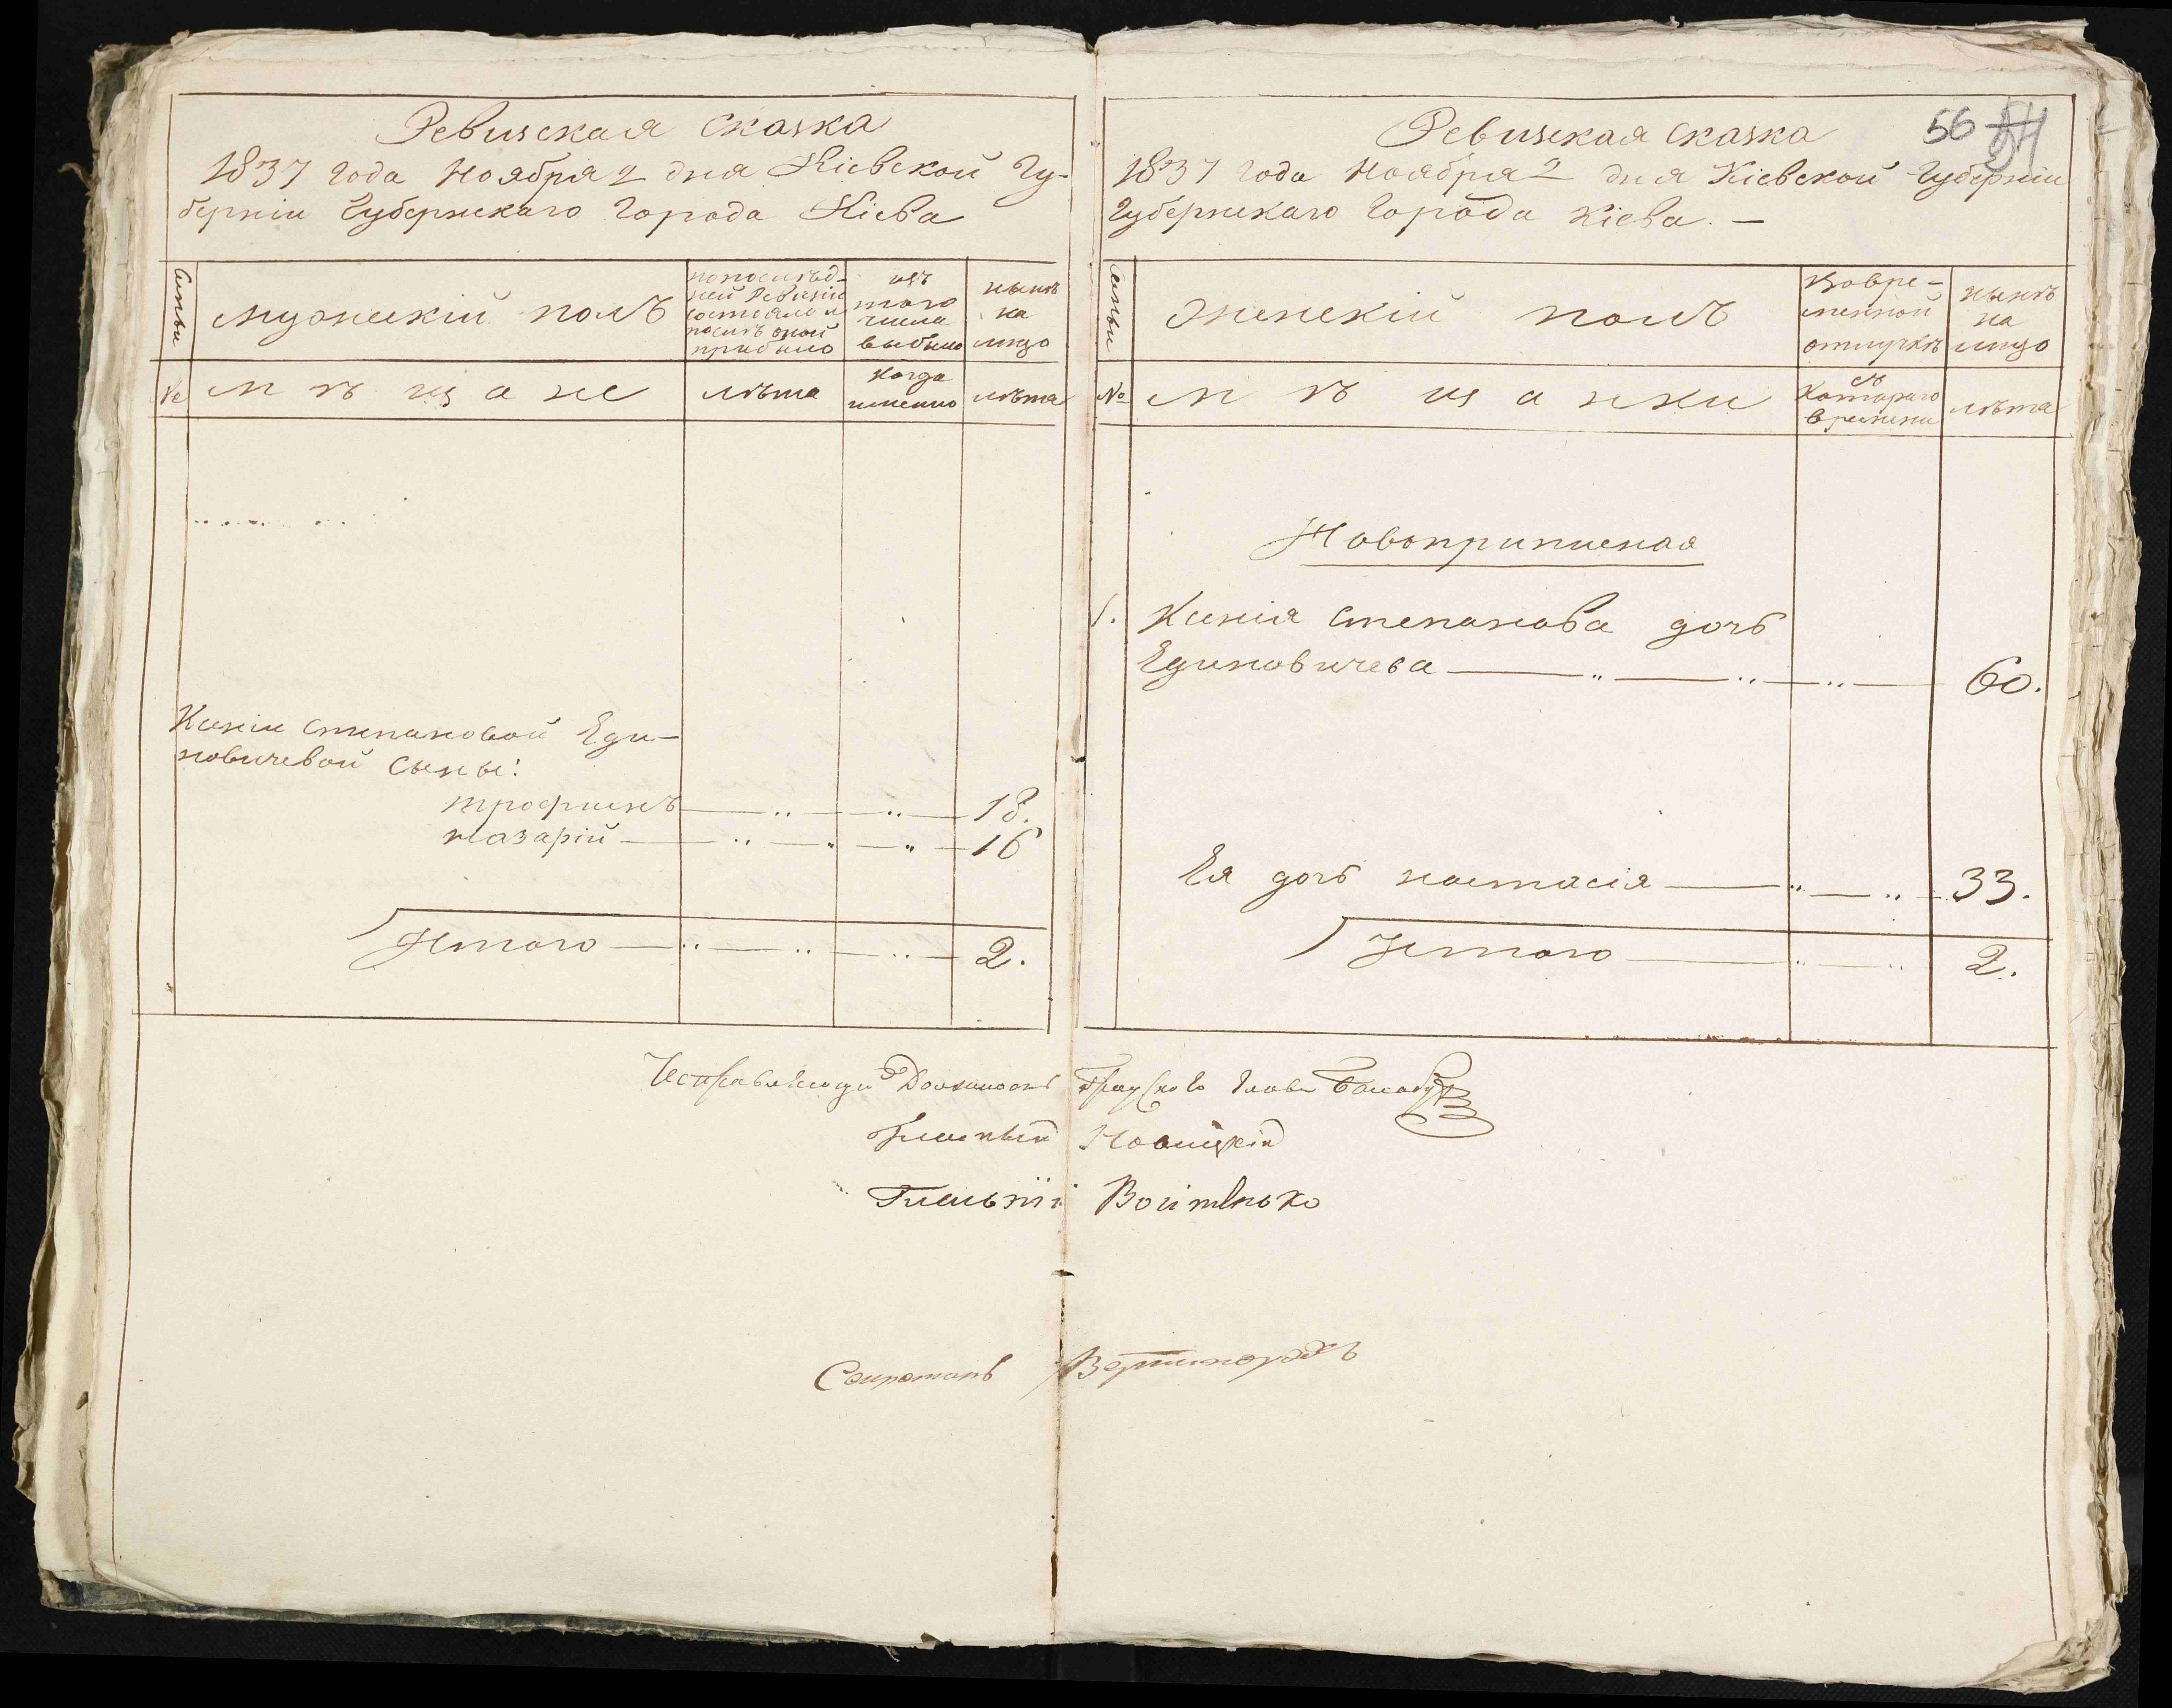 Ревизская сказка
1837 года Ноября 2 дня Кіевской Гу-
берніи Губернскаго Города Кіева
Семьи
мужескій полъ
по послѣд-
ней Ревизіи
состояло и
послѣ оной
прибыло
изъ
того
числа
выбыло
нынѣ
на
лицо
№
мѣщане
лѣта
когда
именно
лѣта
Ксеніи Степановой Еди-
новичевой сыны:
трофимъ 18.
назарій 16
Итого 2.
56 54
Ревизская сказка
1837 года Ноября 2 дня Кіевской Губерніи
Губернскаго Города Кіева. —
Семьи
женскій полъ
Во вре-
менной
отлучкѣ
нынѣ
на
лицо
№
мѣщанки
съ
котораго
времени
лѣта
Новоприписная
1. Ксенія Степанова дочь
Единовичева 60.
Ея дочь настасія 33.
Итого 2.
Исправляющій Должность Градского Главы
Гласный Новицкій
Гласный Войтенько
Секретарь